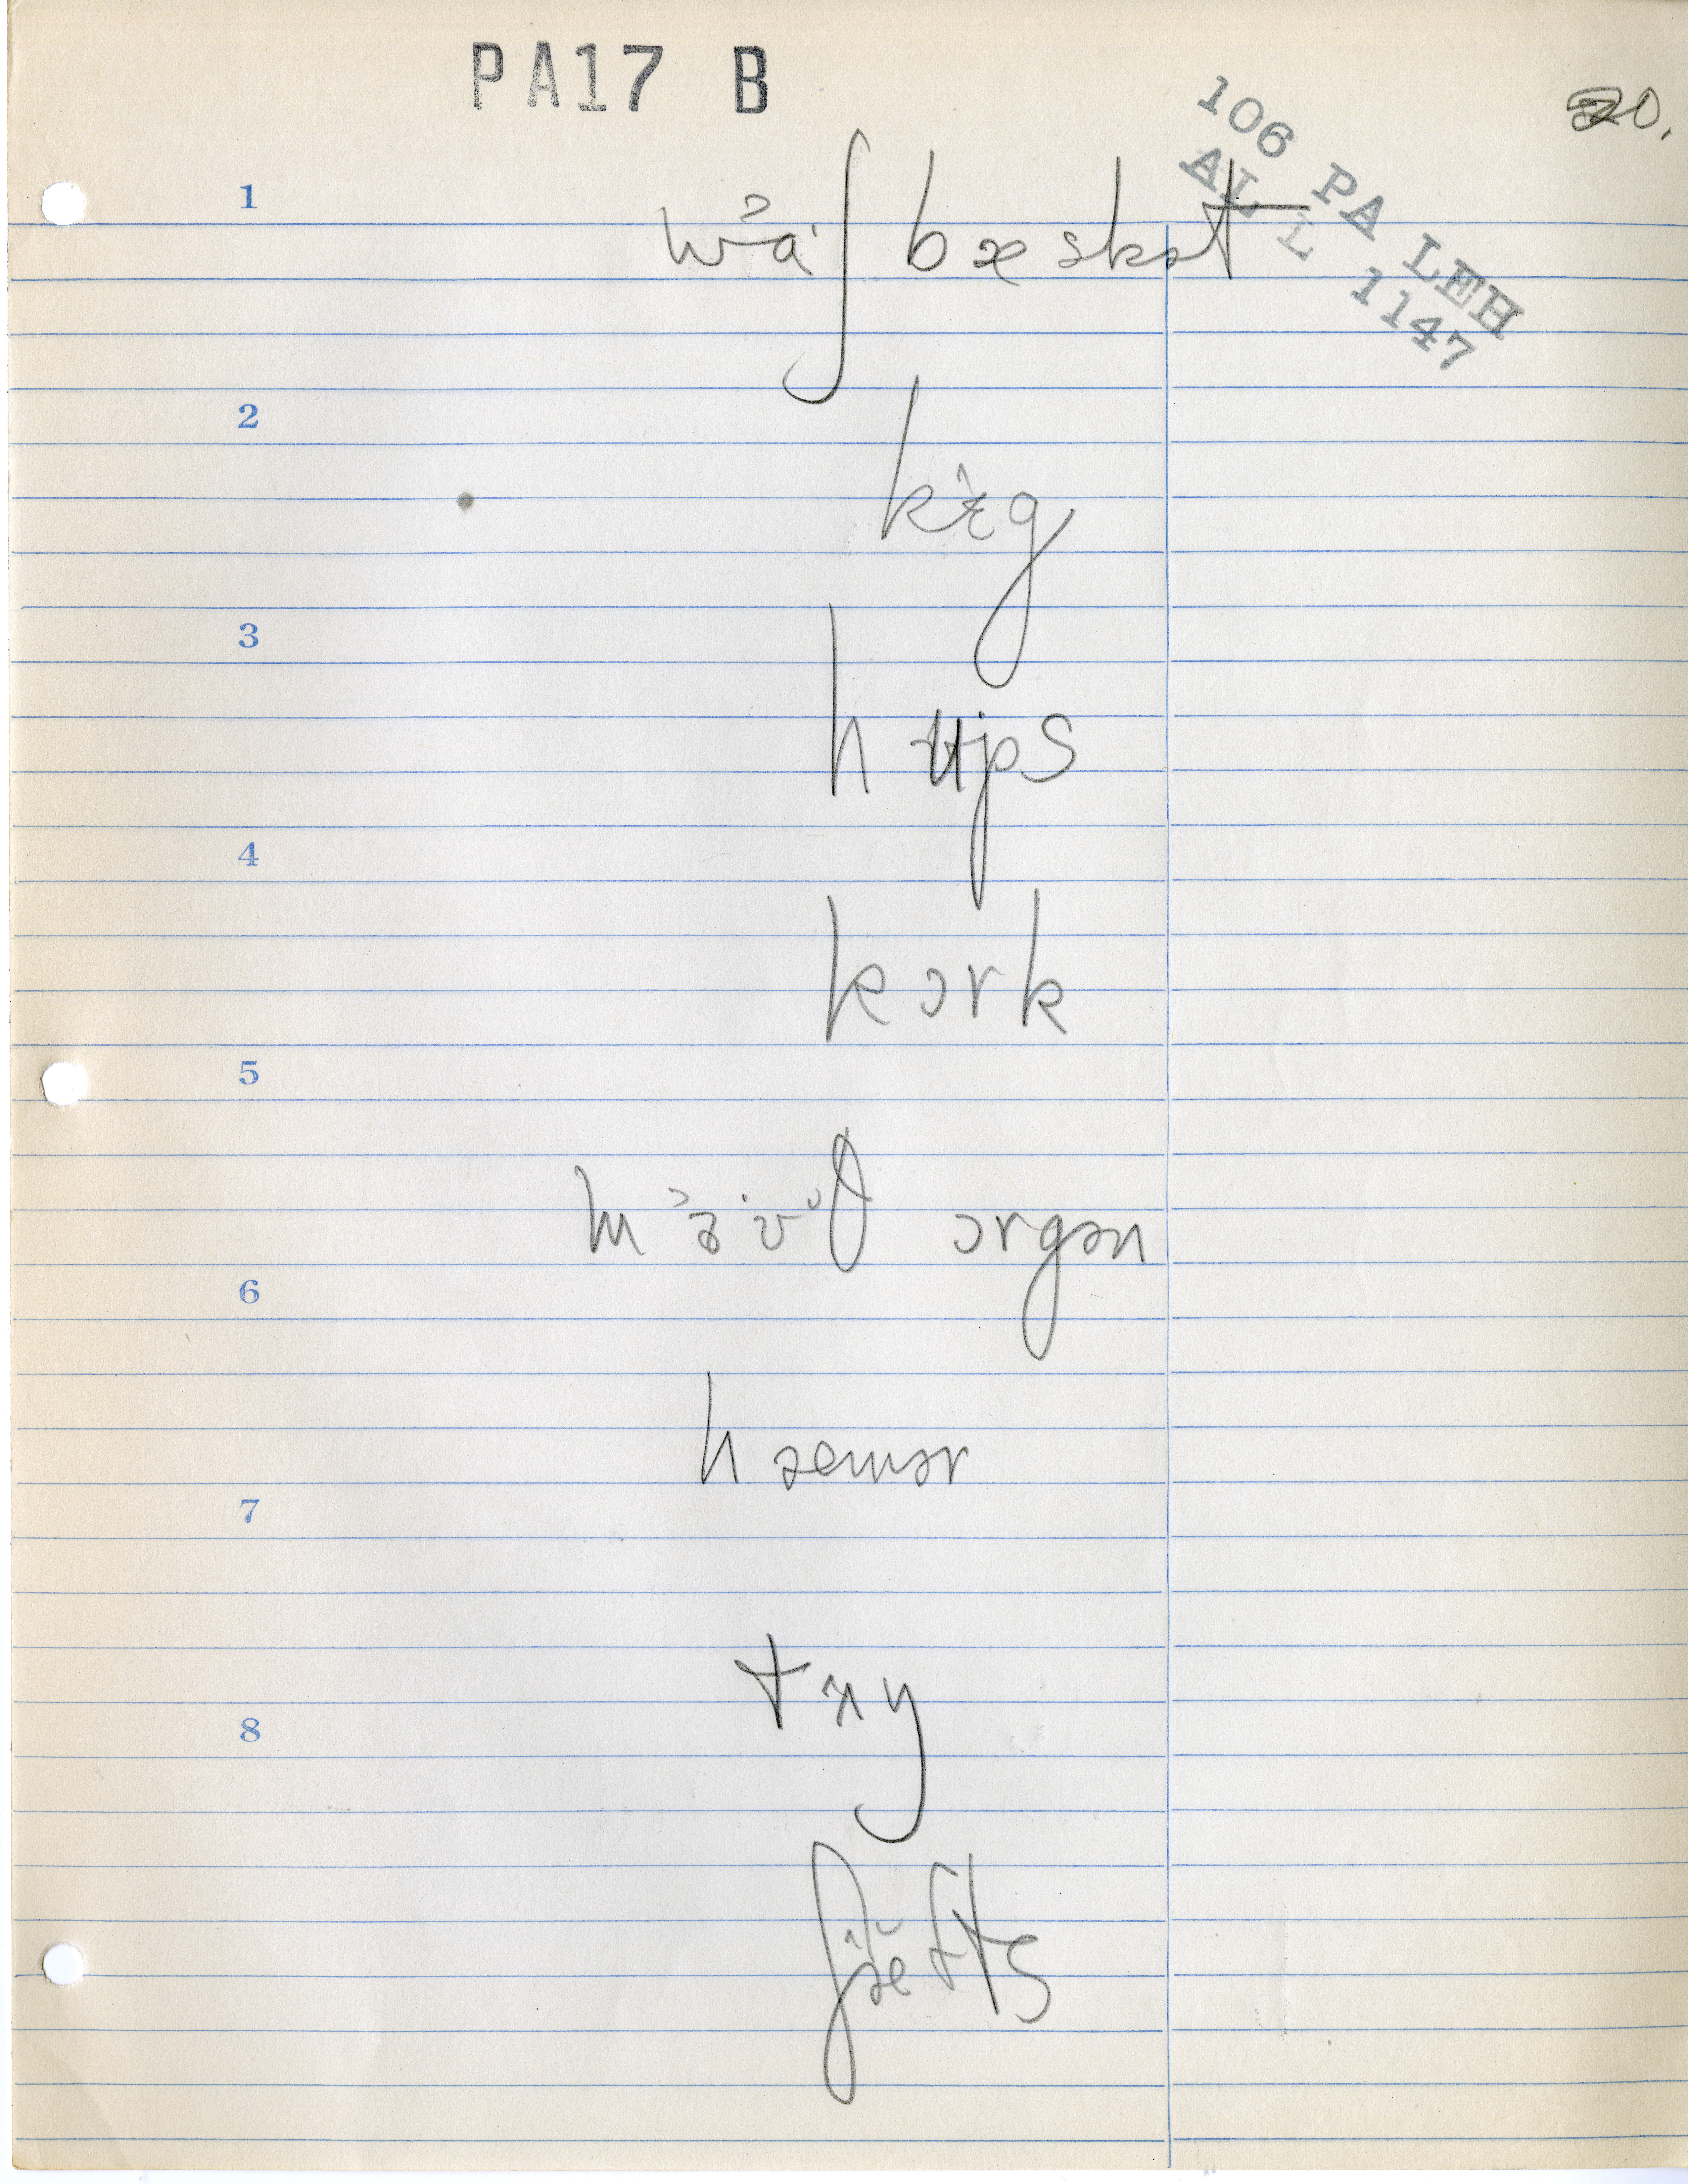 PA17 B
20.
106 PA LEH
ALL 1147
1
wɒ˃ʃ bæskət
2
kɛ˄g
3
hʉps
4
kɔrk
5
mɜ˃ʊ˙θ ɔrgən
6
hæmər
7
8